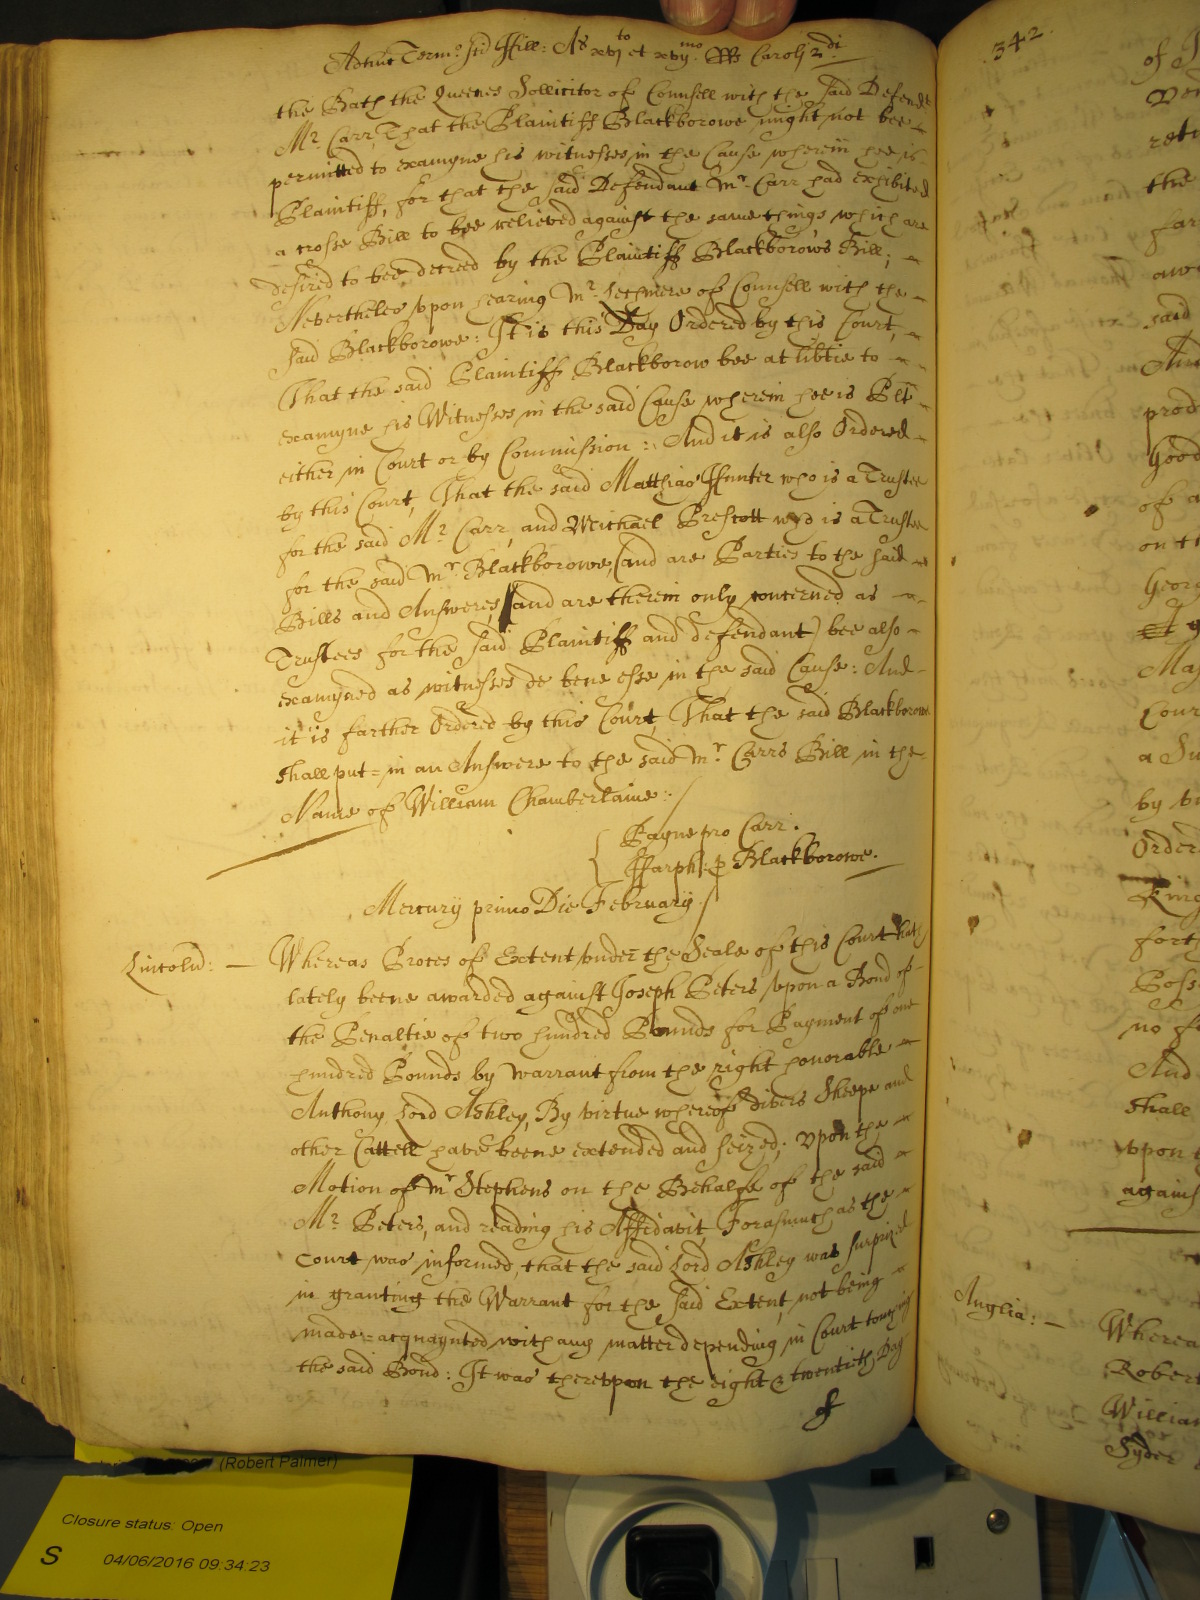 Adhuc Term? Sti Hill: As xvjto et xvijmo RRs Carolj 2di
the Bath the Queenes Sollicitor of Counsell with the said Defendt
Mr. Carr, That the Plaintiff Blackborowe might not bee
permitted to examyne his witnesses in the Cause wherein hee is
Plaintiff, for that the said Defendant Mr. Carr had exhibited
a crosse Bill to bee relieved against the same things which are
desired to bee decreed by the Plaintiff Blackborows Bill;
Neverthelesvpon hearing Mr. Lechmere of Counsell with the
said Blackborowe: It is this Day Ordered by this Court,
That the said Plaintiff Blackborow bee at libtie to
examyne his Witnesses in the said Cause wherein hee is Plt
either in Court or by Commission: And it is also Ordered
by this Court, That the said Matthias Hunter who is a Trustee
for the said Mr. Carr, and Michael Prescott who is a Trustee
for the said Mr. Blackborowe, (and are Parties to the said
Bills and Answeres, and are therein only concerned as
Trustees for the said Plaintiff and defendant) bee also
examyned as witnesses de bene esse in the said Cause: And
it is farther Ordered by this Court, That the said Blackborowe
shall put=in an Answere to the said Mr. Carrs Bill in the
Name of William Chamberlaine:
Payne pro Carr.
Blackborowe.
Mercurij primo Die February
Lincoln: Whereas Proces of Extent vnder the Seale of this Court hath
lately beene awarded against Joseph Peters vpon a Bond of
the Penaltie of two hundred Pounds for Payment of one
hundred Pounds by warrant from the right honorable
Anthony Lord Ashley, By virtue whereof divers Sheepe and
other Cattell have beene extended and seized; Vpon the
Motion of Mr Stephens on the Behalfe of the said
Mr. Peters, and reading his Affidavit, Forasmuch as the
Court was informed, that the said Lord Ashley was surprized
in granting the Warrant for the said Extent, not being
made=acquaynted with any matter depending in Court touching
the said Bond: It was therevpon the eight & twentieth Day
of
342.
of
retu
the
far
awa
said
And
prod
Good
of a
on th
Georg
Maj
Cour
a Su
by vi
Order
King
forth
Poss
no f
And
shall
vpon t
agains
Anglia: Wherea
Robert
William
Syder
(Robert Palmer)
Closure status: Open
S 04/06/2016 09:34:23